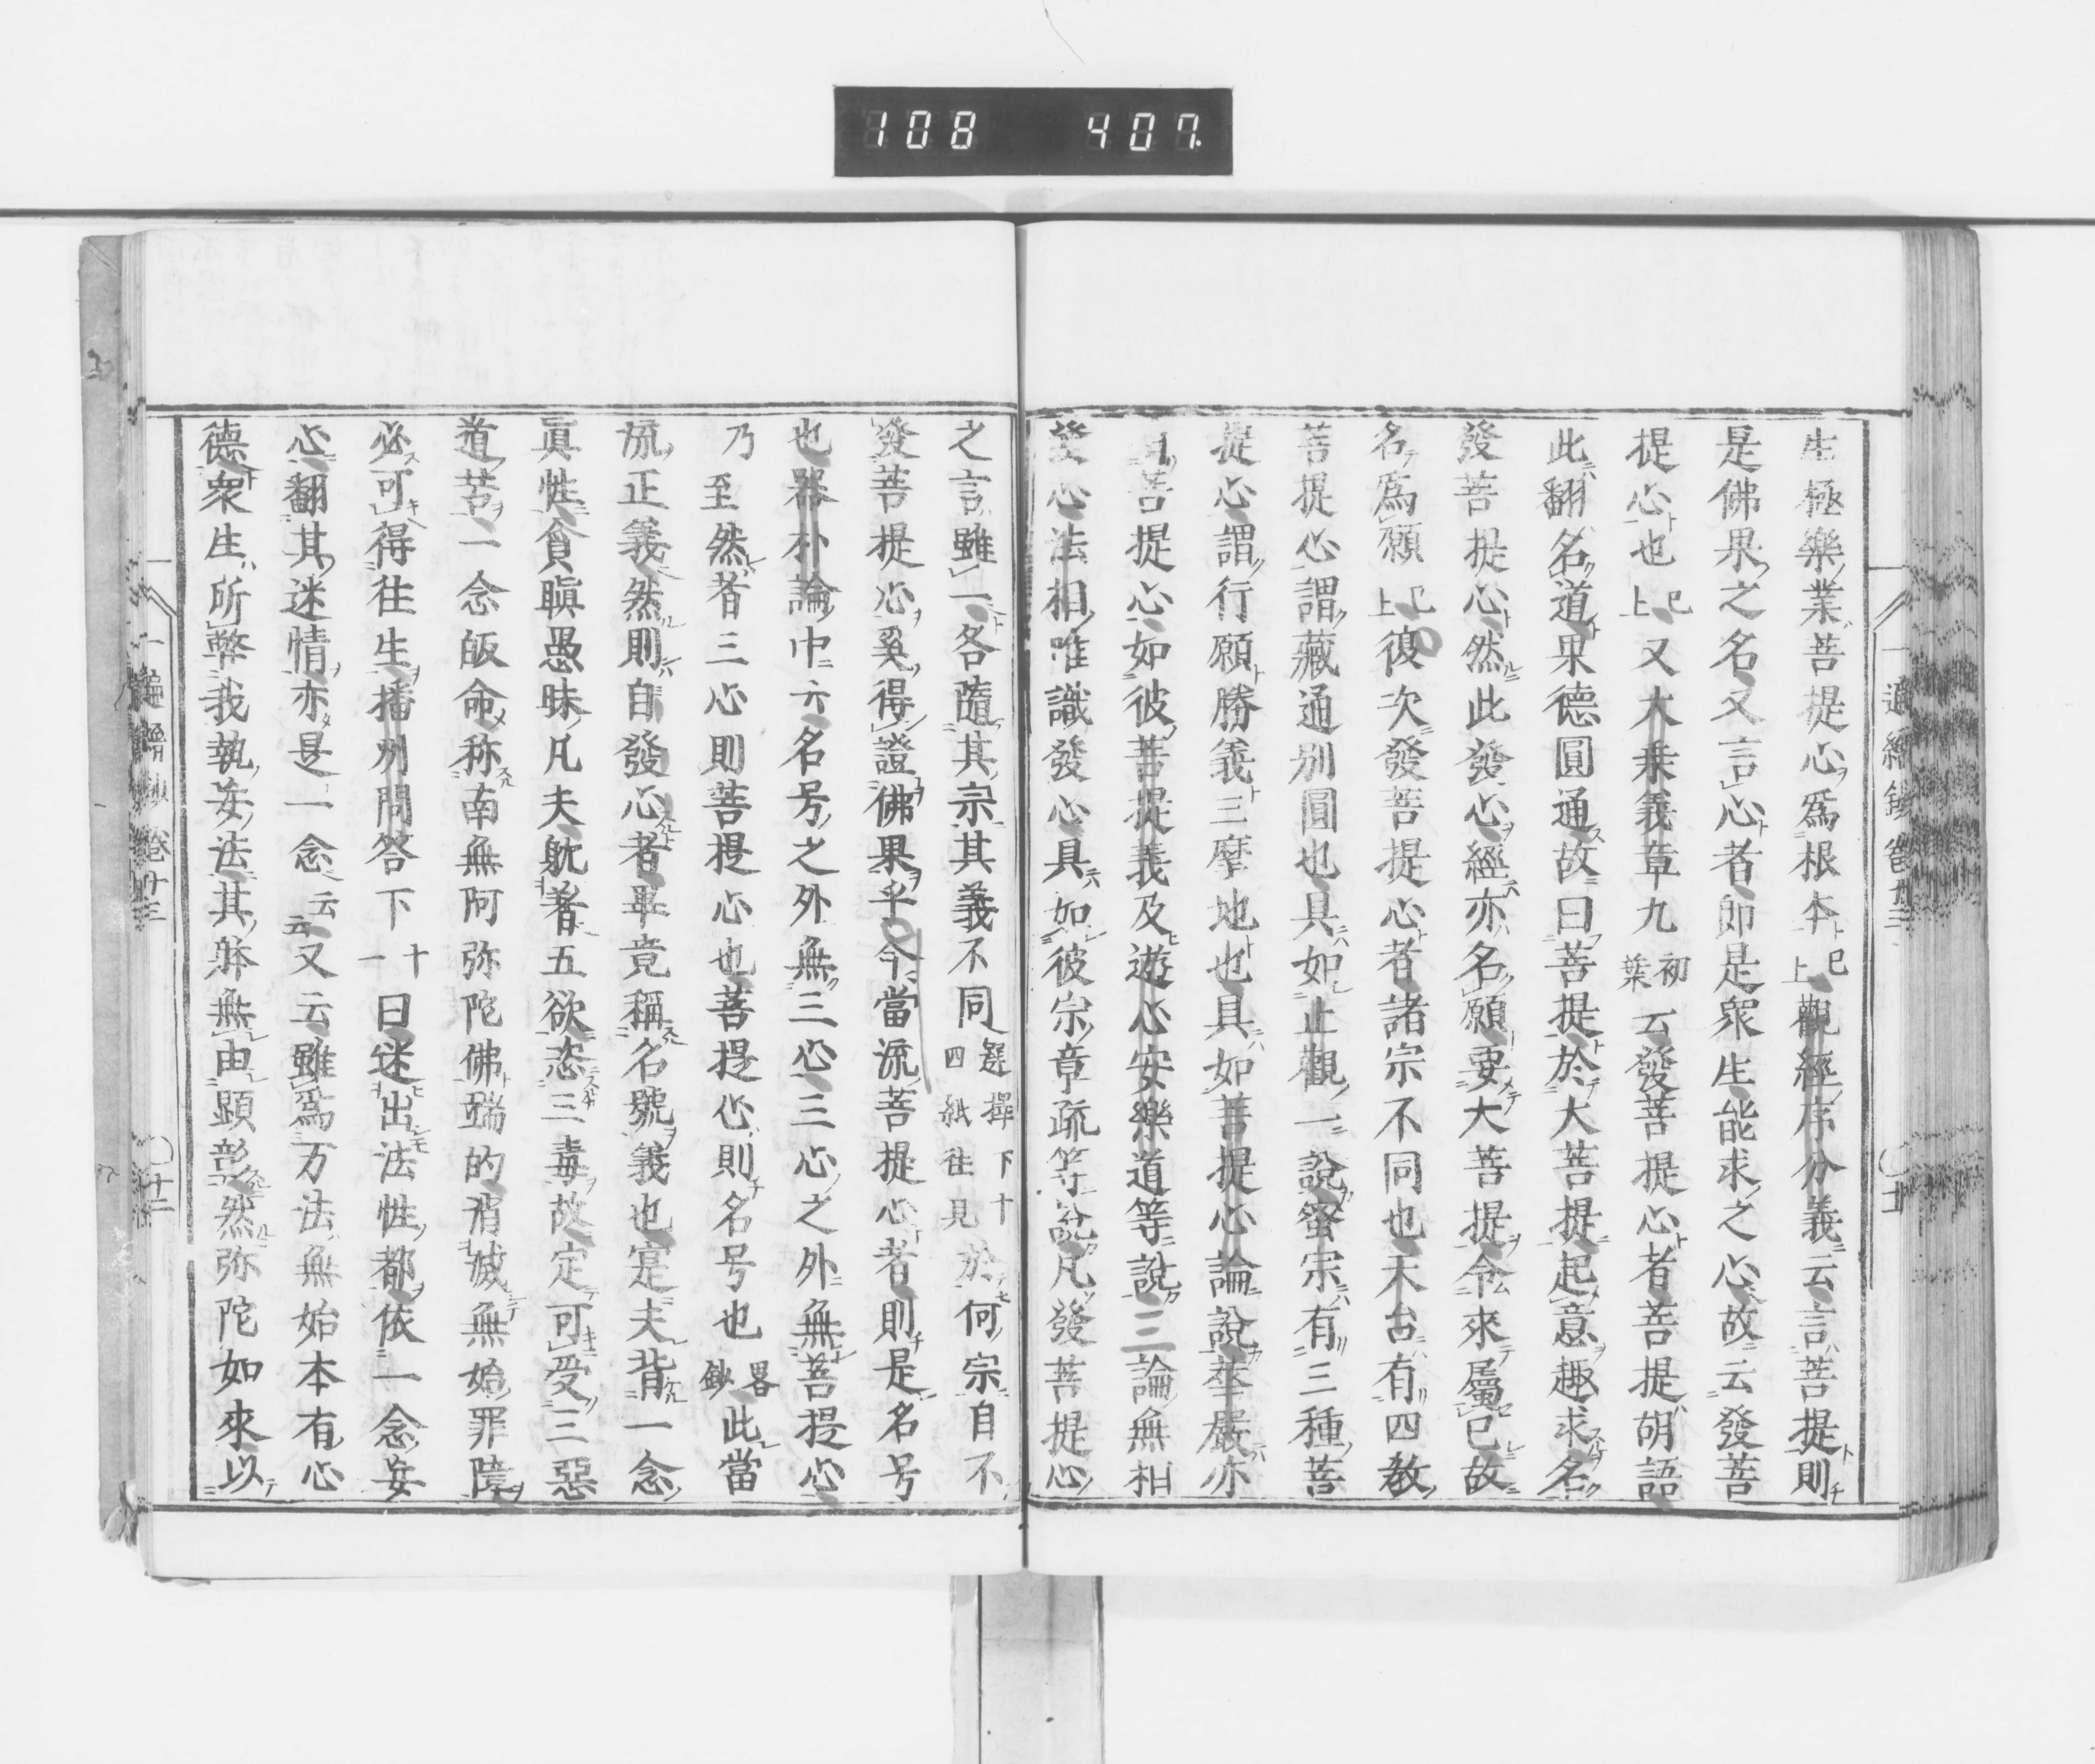 108 407
生極樂業菩提心爲根本已上觀經序分義云言菩提則
是佛果之名又言心者即是衆生能求之心故云發菩
提心也已上又大乗義章九初葉云發菩提心者菩提胡語
此翻名道果德圓通故曰菩提於大菩提起意趣求名
發菩提心然此發心經亦名願要大菩提令來屬已故
名爲願已上彼次發菩提心者諸宗不同也天台有四教
菩提心謂藏通別圓也具如止觀一說蜜宗有三種菩
提心謂行願勝義三摩地也具如菩提心論說華嚴亦
菩提心如彼菩提義及遊心安樂道等說三論無相
發心法相唯識發心具如彼宗章疏等說凡發菩提心
之言雖一各隨其宗其義不同選擇下十四紙徃見於何宗自不
發菩提心奚得證佛果乎今當流菩提心者則是名号
也器朴論中云名号之外無三心三心之外無菩提心
乃至然者三心則菩提心也菩提心則名号也畧鈔此當
流正義然則自發心者畢竟稱名號義也寔夫背一念
眞性貪瞋愚昧凡夫躭著五欲恣三毒故定可受三惡
道苦一念皈命称南無阿弥陀佛端的消滅無始罪障
必可得徃生播州問答下十一曰迷出法性都依一念妄
心翻其迷情亦是一念云云又云雖爲万法無始本有心
德衆生所弊我執妄法其躰無由顕彰然弥陀如來以